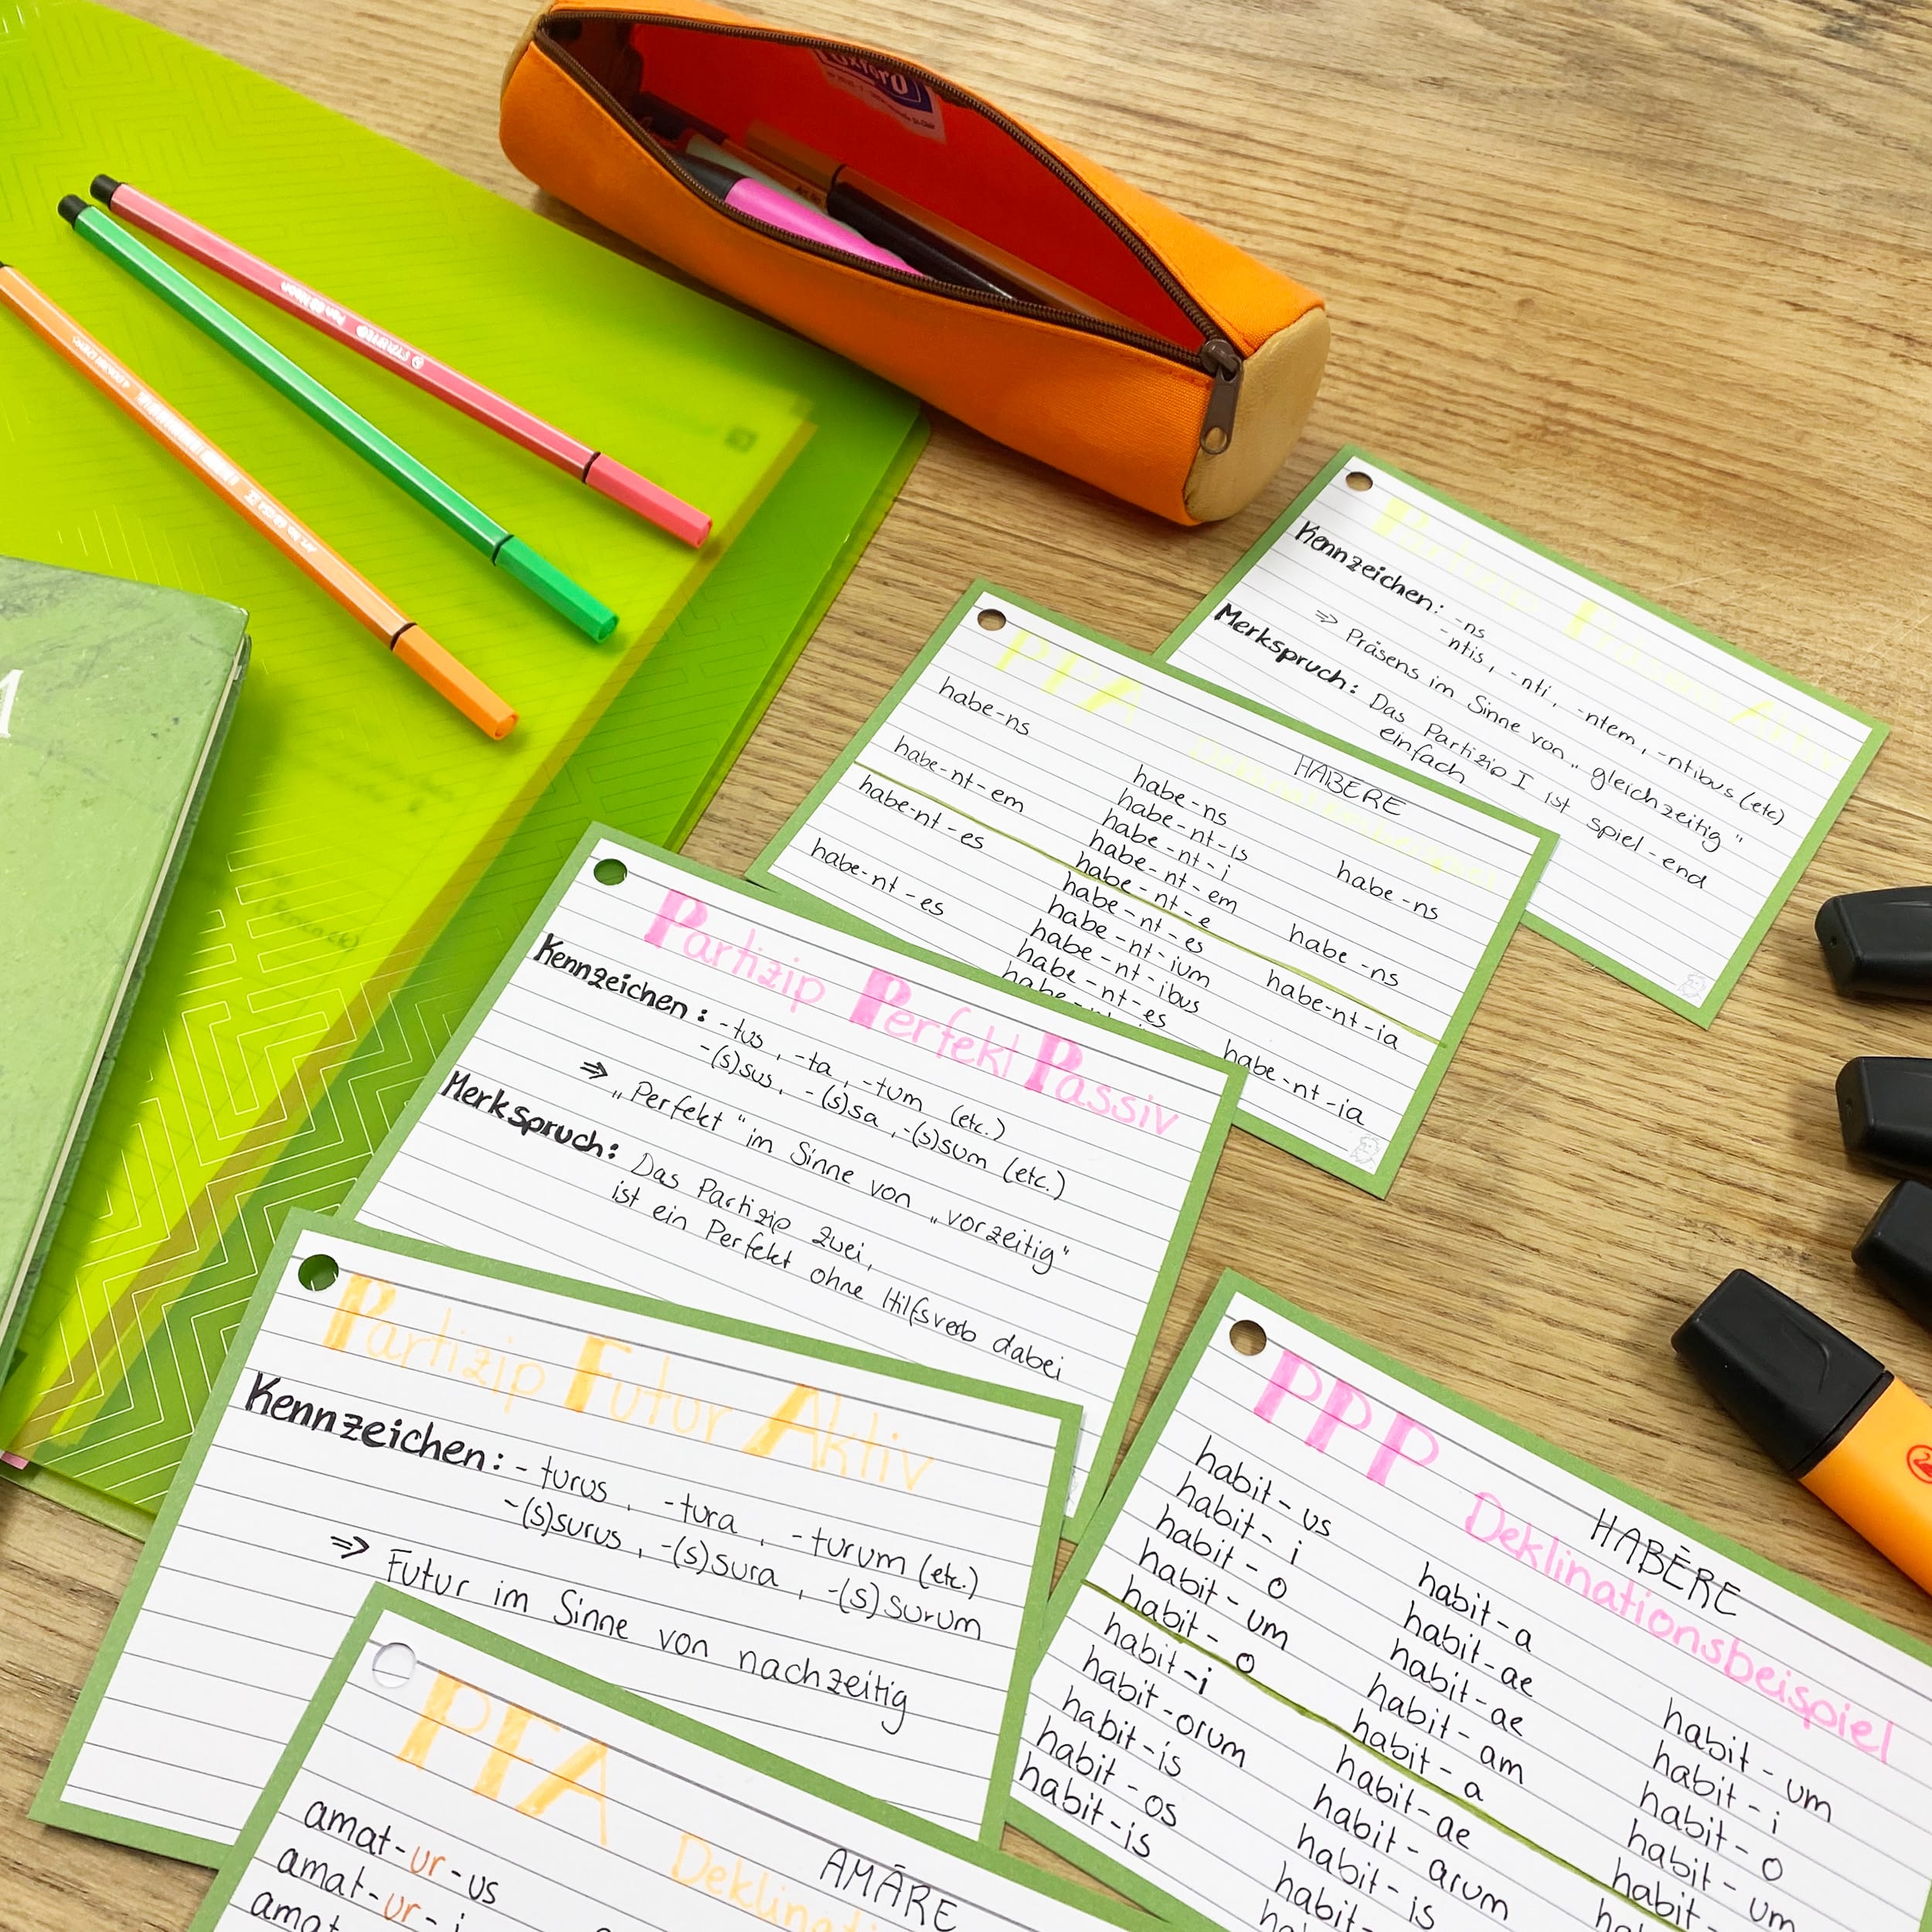 Oxford
STABILO Pen 68
Partizip Präsens Aktiv
Kennzeichen: -ns
-ntis, -nti, -ntem, -ntibus (etc)
⇒ Präsens im Sinne von „gleichzeitig"
Merkspruch: Das Partizip I ist spiel-end
einfach
PPA HABERE
Deklinationsbeispiel
habe-ns
habe-nt-em
habe-nt-es
habe-nt-es
habe-ns
habe-nt-is
habe-nt-i
habe-nt-em
habe-nt-e
habe-nt-es
habe-nt-ium
habe-nt-ibus
habe-nt-es
habe-ns
habe-ns
habe-nt-ia
habe-nt-ia
Partizip Perfekt Passiv
Kennzeichen: -tus, -ta, -tum (etc.)
-(s)sus, -(s)sa, -(s)sum (etc.)
⇒ „Perfekt" im Sinne von „vorzeitig"
Merkspruch: Das Partizip zwei,
ist ein Perfekt ohne Hilfsverb dabei
Partizip Futur Aktiv
Kennzeichen: -turus, -tura, -turum (etc.)
-(s)surus, -(s)sura, -(s)surum
⇒ Futur im Sinne von nachzeitig
PPP HABĒRE
Deklinationsbeispiel
habit-us
habit-i
habit-o
habit-um
habit-o
habit-i
habit-orum
habit-is
habit-os
habit-is
habit-a
habit-ae
habit-ae
habit-am
habit-a
habit-ae
habit-arum
habit-is
habit-
habit-um
habit-i
habit-o
habit-um
habit-
PFA AMĀRE
Deklinati
amat-ur-us
amat-ur-i
amat